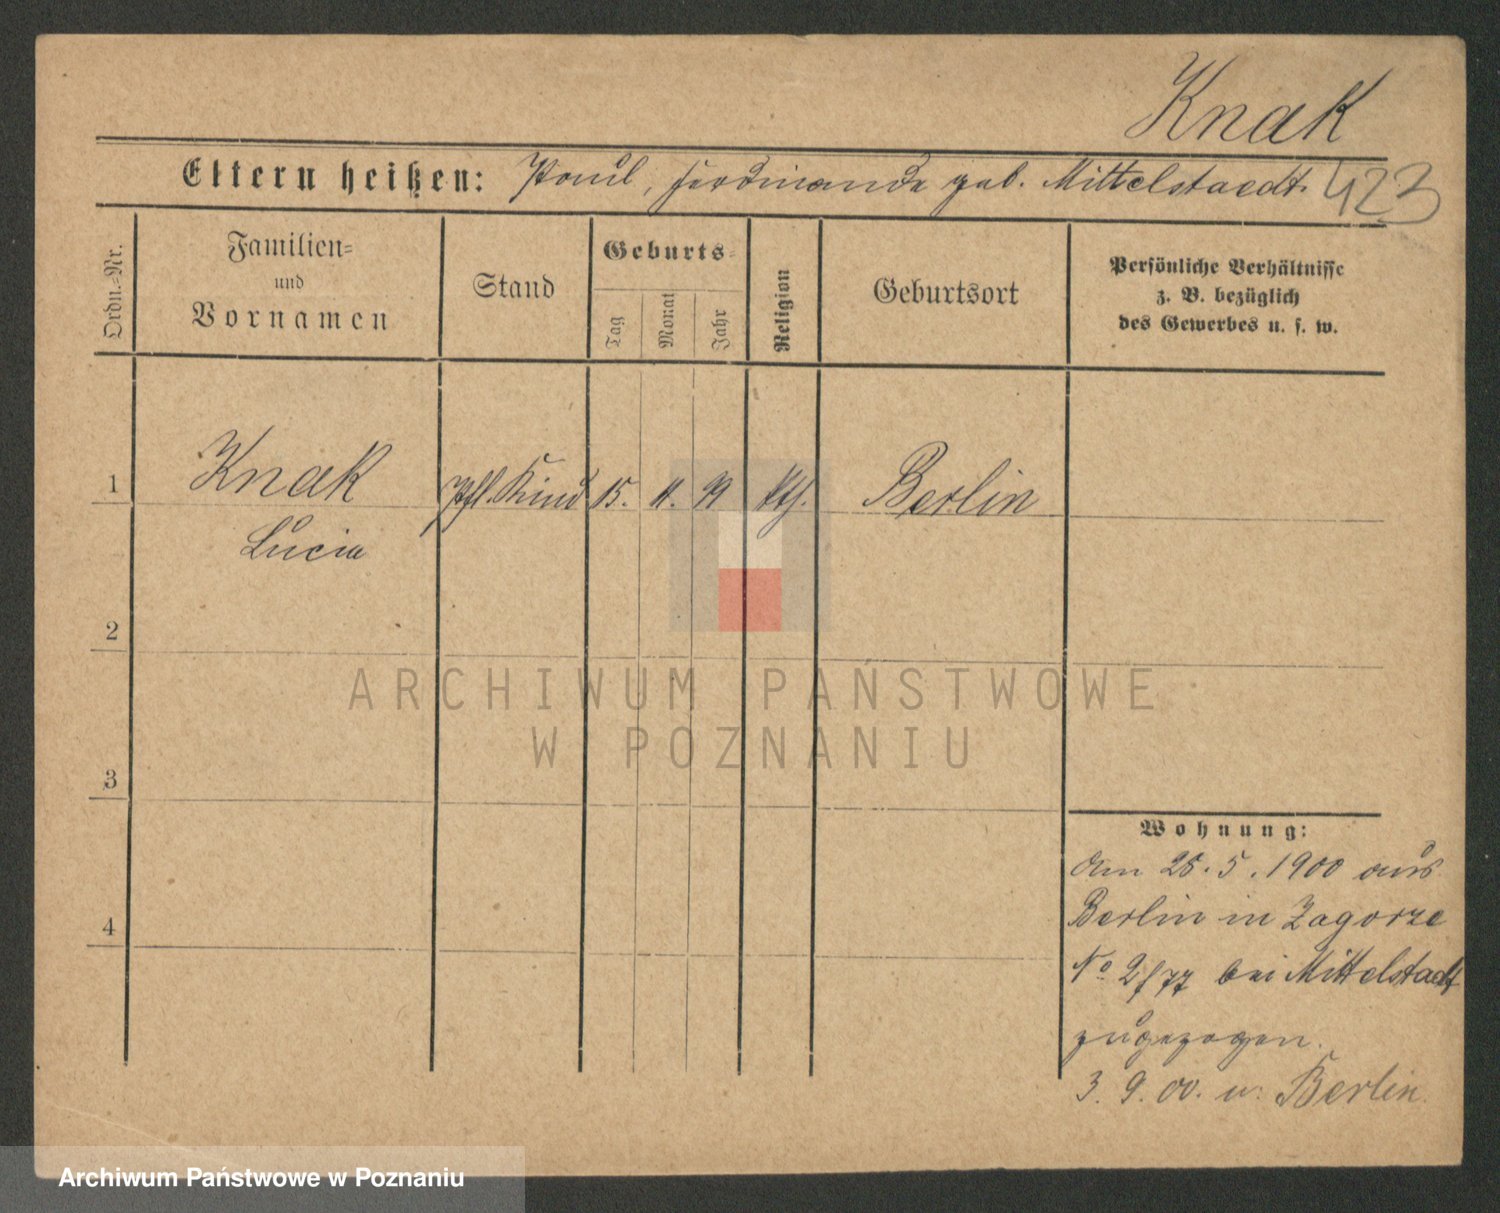 Knak
Eltern heißen: Paul, Ferdinande geb. Mittelstaedt.
423
Ordn.=Nr.
Familien=
und
Vornamen
Stand
Geburts=
Tag
Monat
Jahr
Religion
Geburtsort
Persönliche Verhältnisse
z. B. bezüglich
des Gewerbes u. s. w.
1
Knak
Lucia
Pfl. Kind
15.
11.
99
kth.
Berlin
2
3
4
Wohnung:
am 25.5.1900 aus
Berlin in Zagorze
No 2/77 bei Mittelstaedt
zugezogen.
3. 9. 00. n. Berlin.
ARCHIWUM PAŃSTWOWE
W POZNANIU
Archiwum Państwowe w Poznaniu